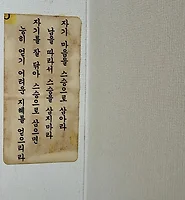 자기 마음을 스승으로 삼아라
남을 따라서 스승을 삼지마라
자기를 잘 닦아 스승으로 삼으면
능히 얻기 어려운 지혜를 얻으리라